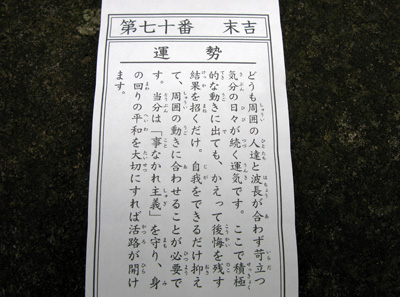 第七十番　末吉
運勢
どうも周囲の人達と波長が合わず苛立つ
気分の日々が続く運気です。ここで積極
的な動きに出ても、かえって後悔を残す
結果を招くだけ。自我をできるだけ抑え
て、周囲の動きに合わせることが必要で
す。当分は「事なかれ主義」を守り、身
の回りの平和を大切にすれば活路が開け
ます。